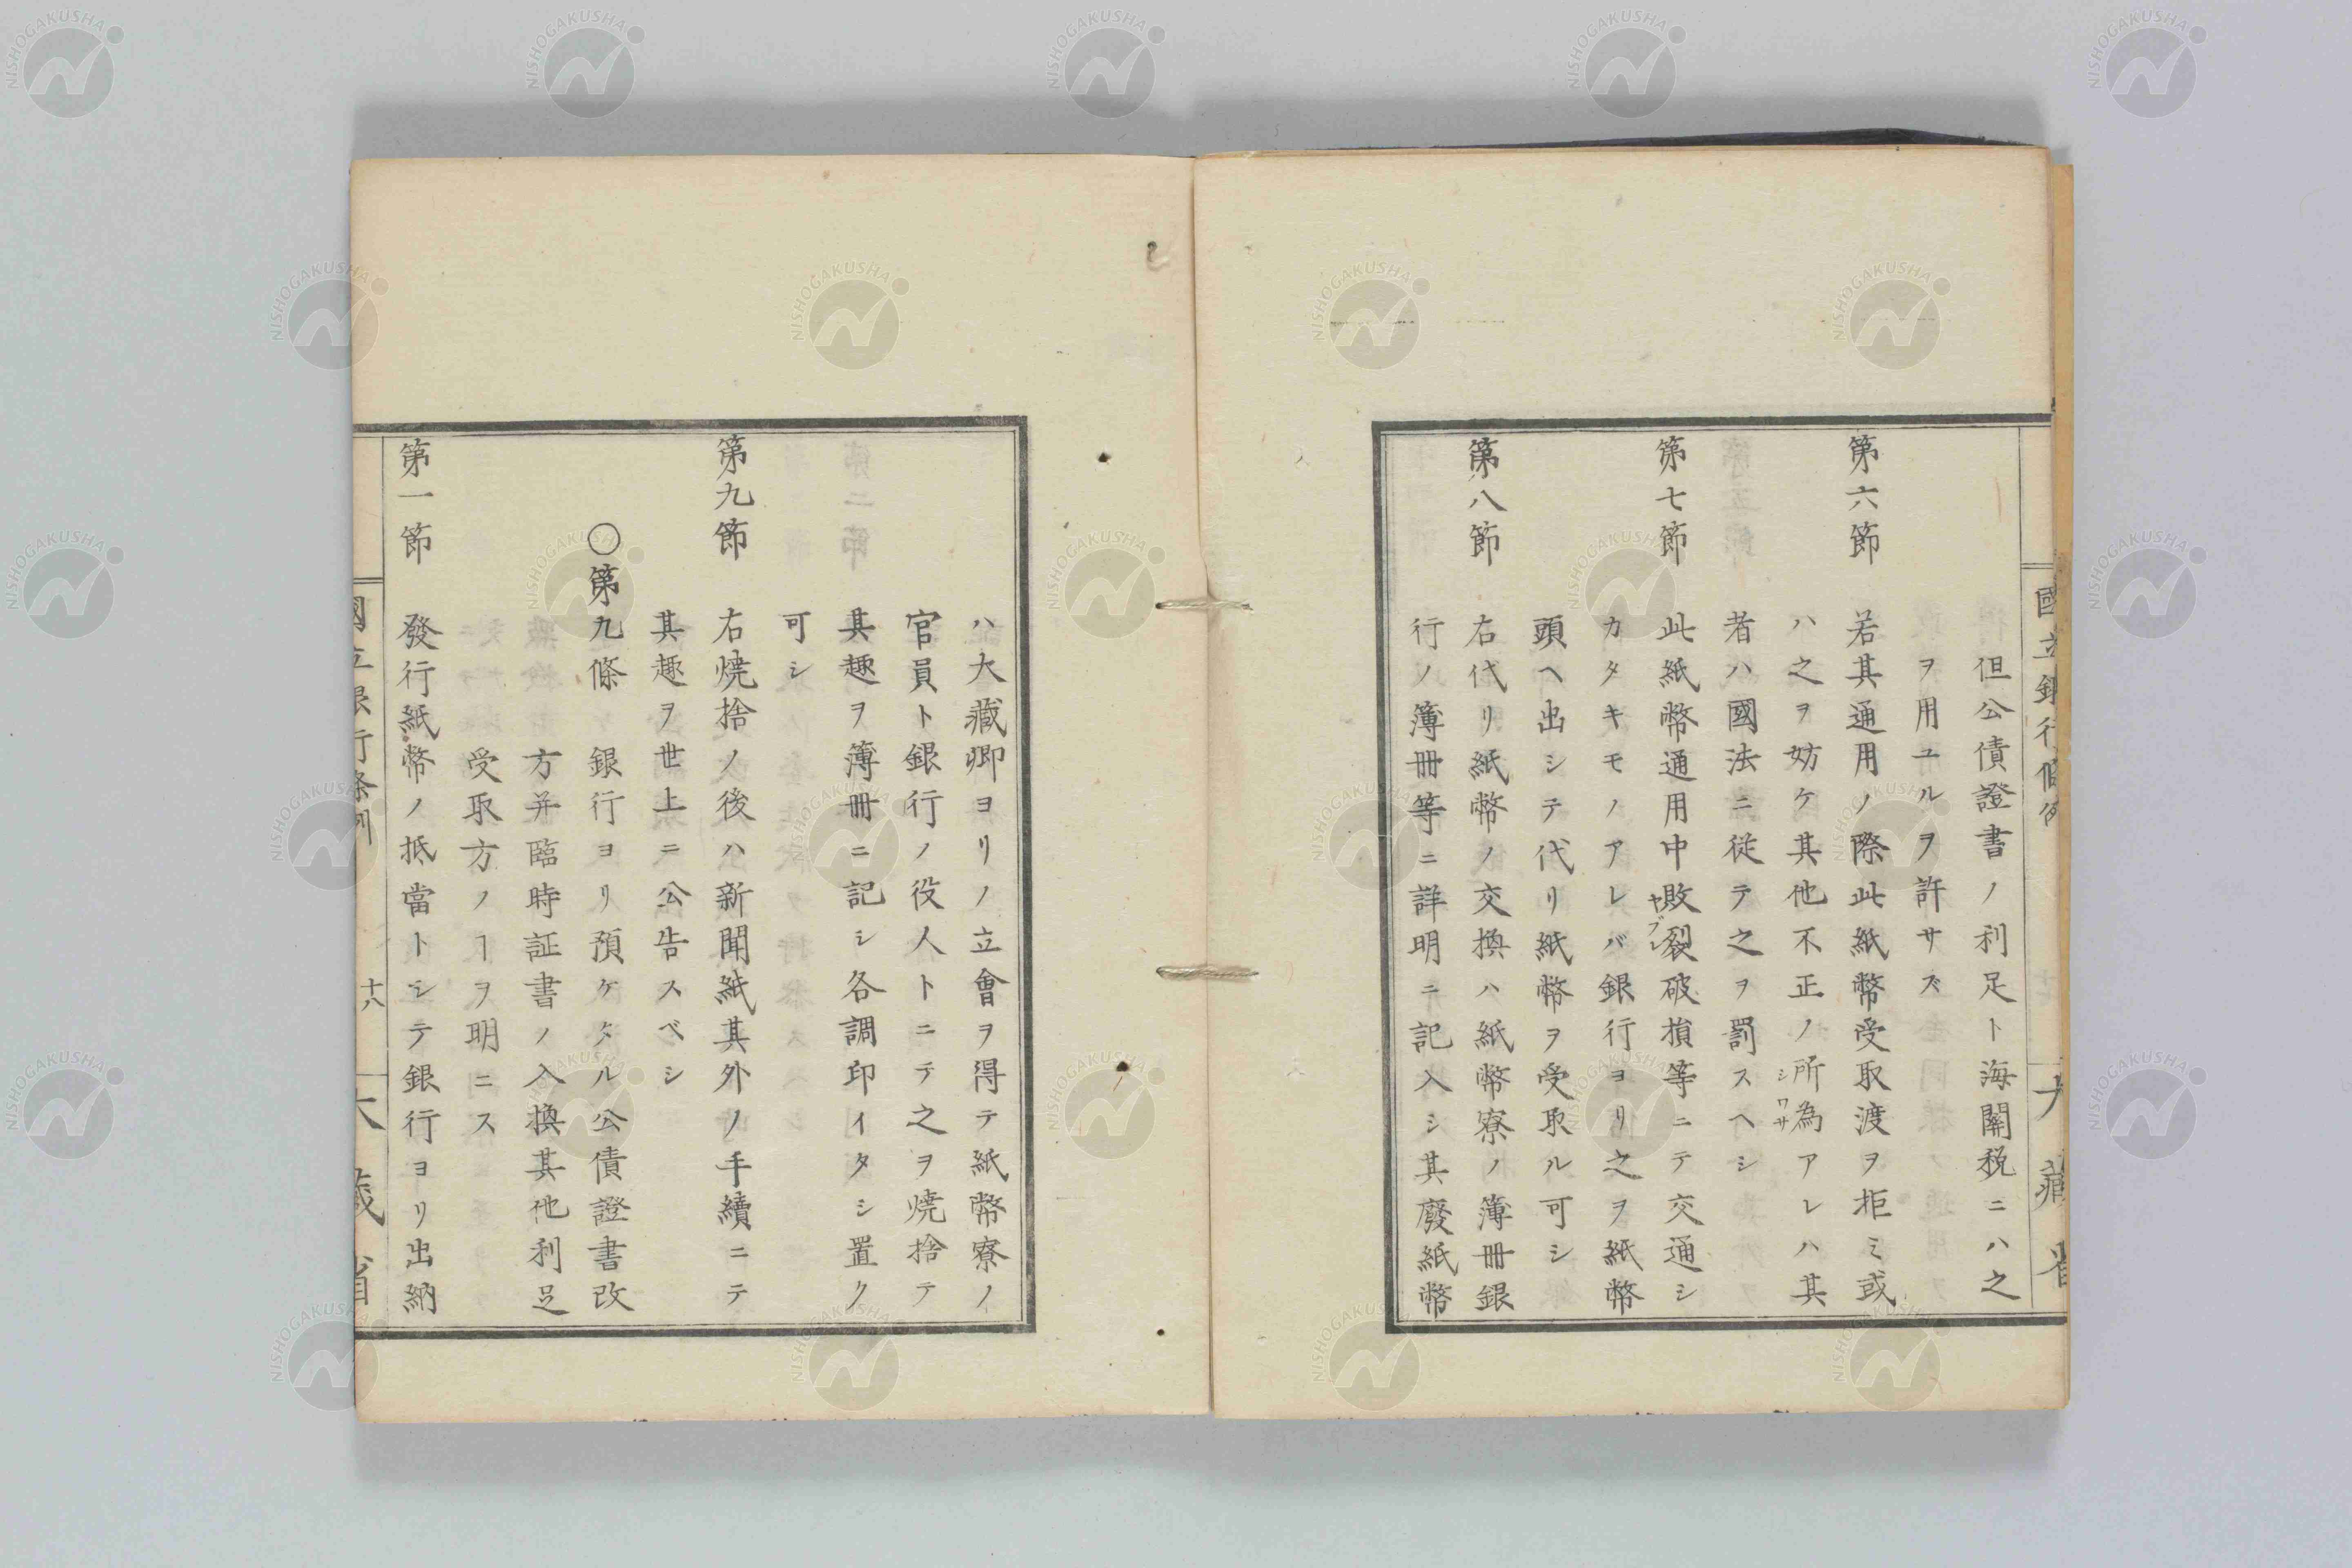 國立銀行條例
大藏省
但公債證書ノ利足ト海關税ニハ之
ヲ用ユルヲ許サズ
第六節 若其通用ノ際此紙幣受取渡ヲ拒ミ或
ハ之ヲ妨ケ其他不正ノ所為アレハ其
シワサ
者ハ國法ニ從テ之ヲ罰スヘシ
第七節 此紙幣通用中敗裂破損等ニテ交通シ
ヤブレ
カタキモノアレバ銀行ヨリ之ヲ紙幣
頭ヘ出シテ代リ紙幣ヲ受取ル可シ
第八節 右代リ紙幣ノ交換ハ紙幣寮ノ簿冊銀
行ノ簿冊等ニ詳明ニ記入シ其廢紙幣
ハ大藏卿ヨリノ立會ヲ得テ紙幣寮ノ
官員ト銀行ノ役人トニテ之ヲ焼捨テ
其趣ヲ簿冊ニ記シ各調印イタシ置ク
可シ
第九節 右焼捨ノ後ハ新聞紙其外ノ手續ニテ
其趣ヲ世上ニ公告スベシ
〇第九條 銀行ヨリ預ケタル公債證書改
方并臨時証書ノ入換其他利足
受取方ノヿヲ明ニス
第一節 發行紙幣ノ抵當トシテ銀行ヨリ出納
國立銀行條例
十八
大藏省
NISHOGAKUSHA